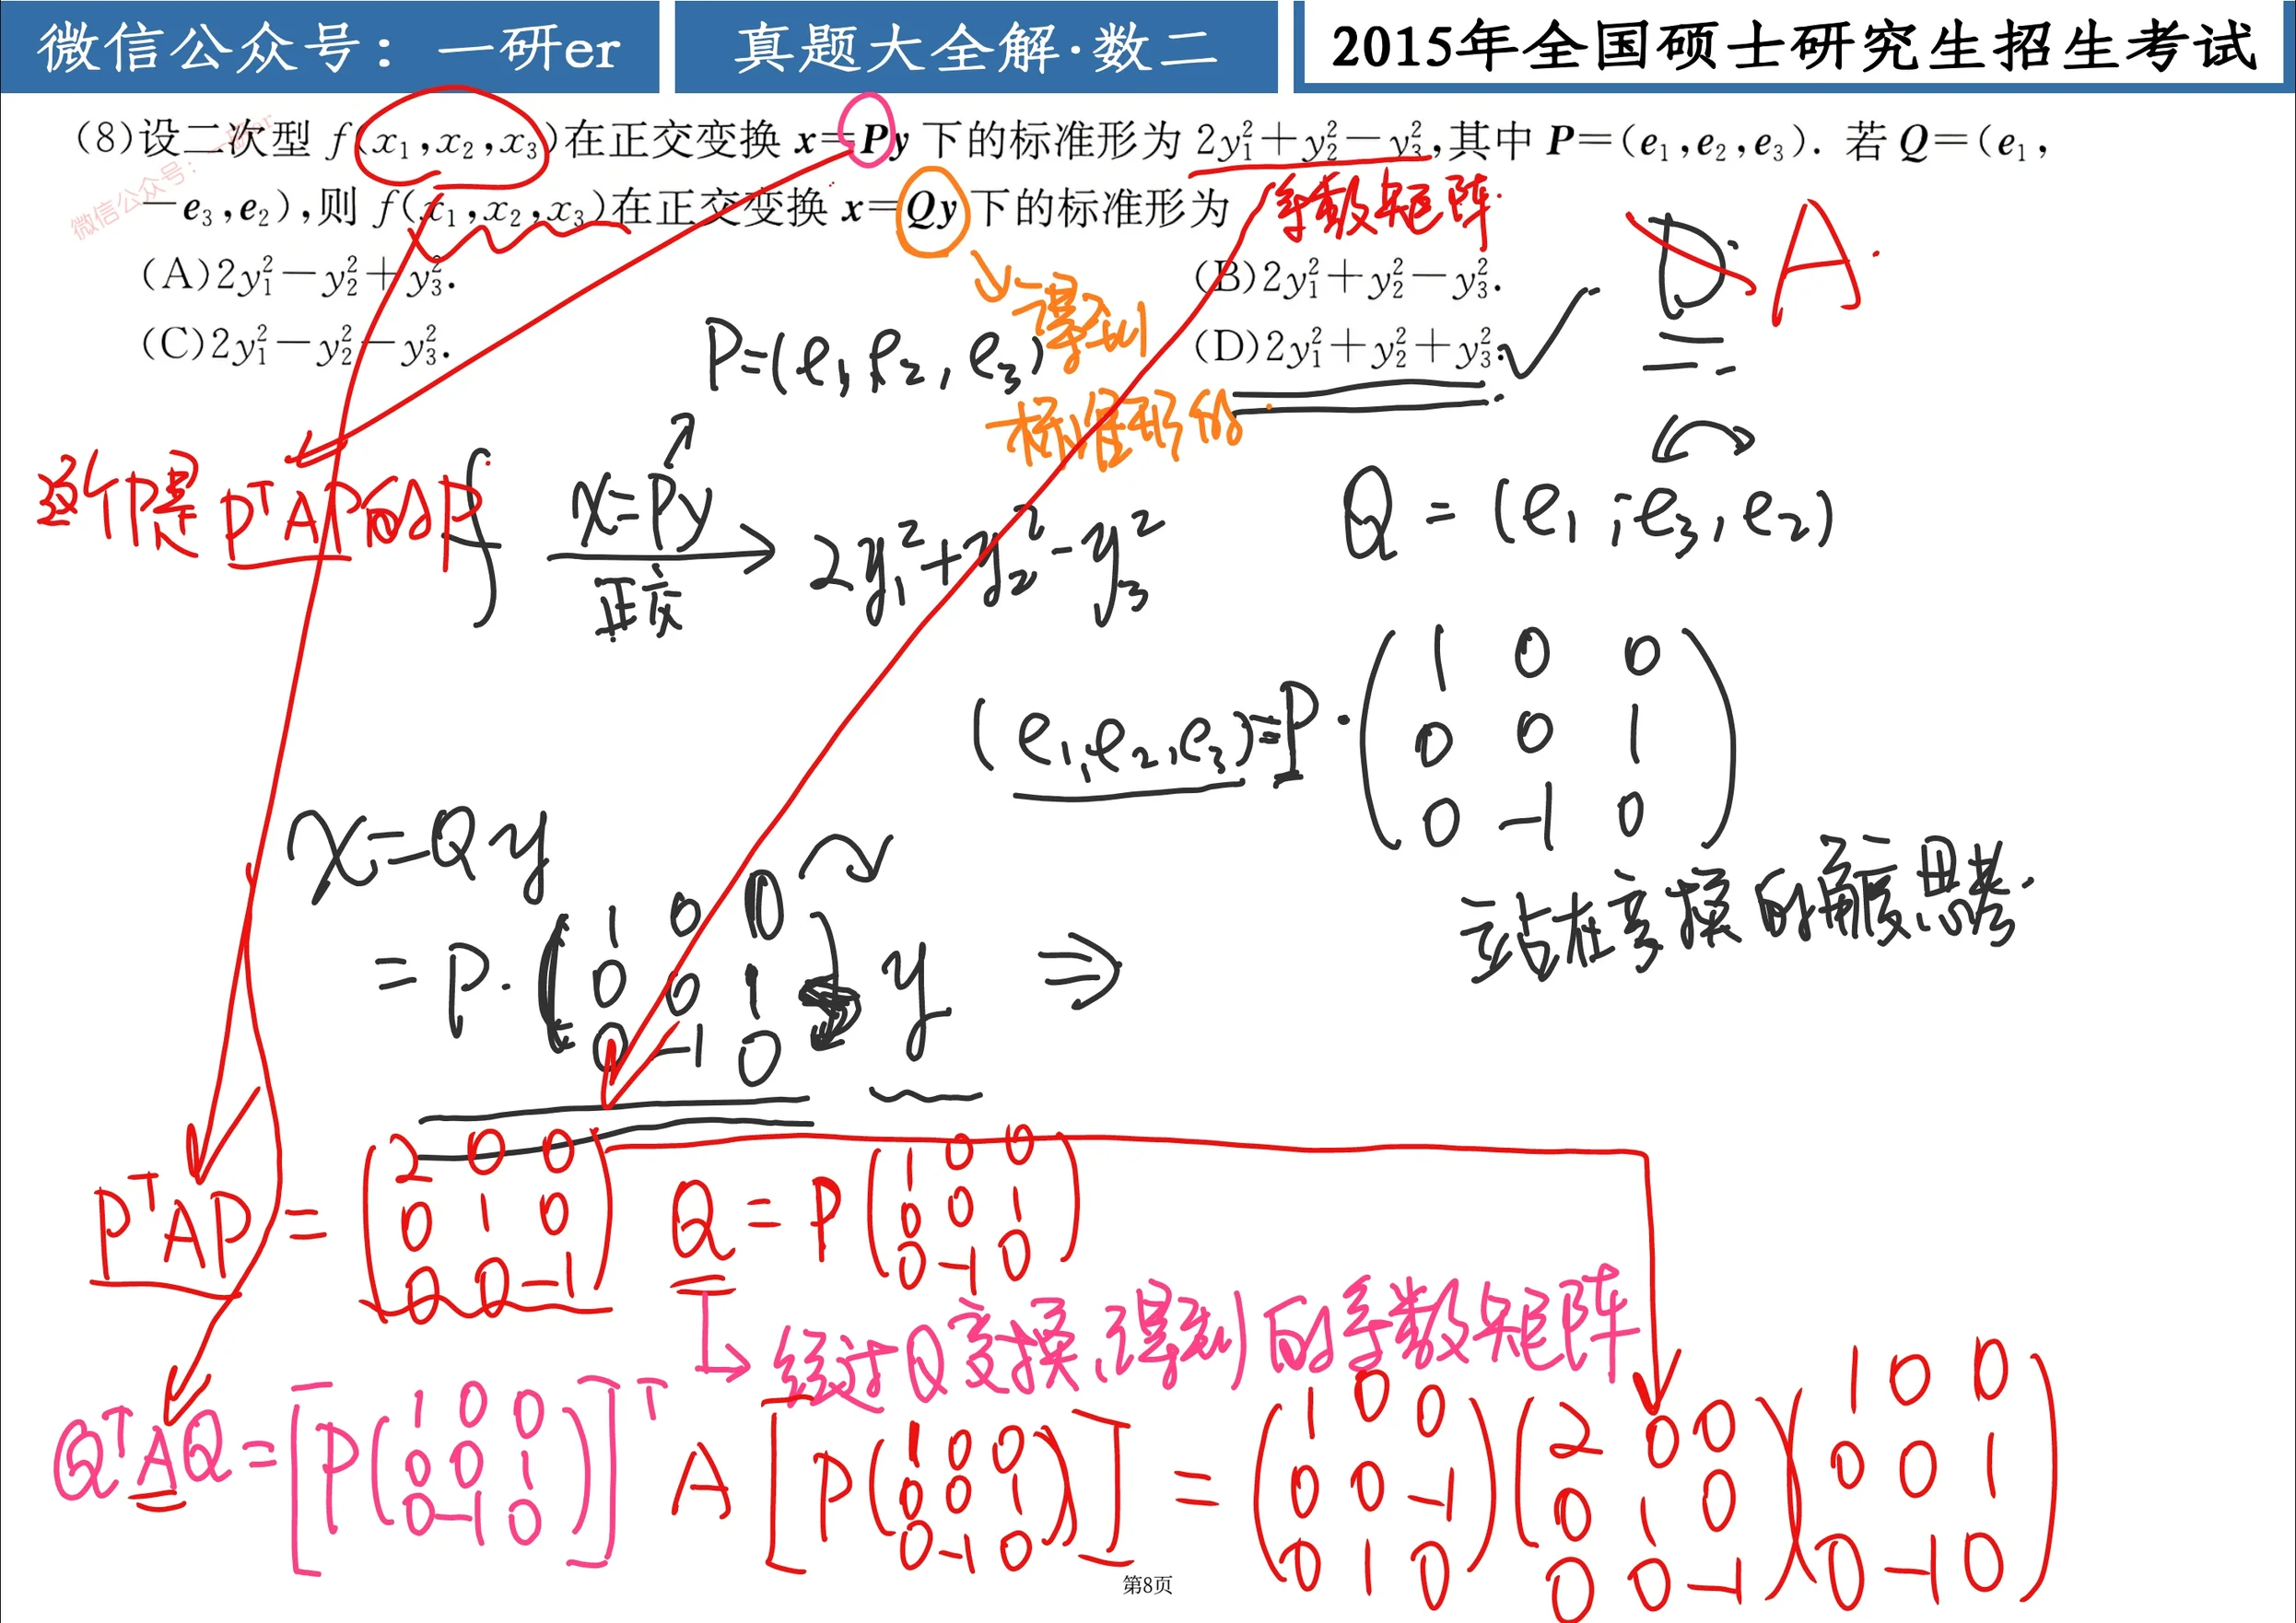 微信公众号：一研er 真题大全解·数二 2015年全国硕士研究生招生考试
(8)设二次型 f(x₁,x₂,x₃)在正交变换 x=Py 下的标准形为 2y₁²+y₂²−y₃²,其中 P=(e₁,e₂,e₃). 若 Q=(e₁,
−e₃,e₂),则 f(x₁,x₂,x₃)在正交变换 x=Qy 下的标准形为
微信公众号：一研er
系数矩阵
D A
(A)2y₁²−y₂²+y₃². (B)2y₁²+y₂²−y₃².
(C)2y₁²−y₂²−y₃². (D)2y₁²+y₂²+y₃².
得到
标准形的
P=(e₁,e₂,e₃)
这个P是 PᵀAP的P
f x=Py 2y₁²+y₂²−y₃²
正交
Q=(e₁,−e₃,e₂)
(e₁,e₂,e₃)=P·
1 0 0
0 0 1
0 −1 0
站在变换的角度思考.
x=Qy
=P·
1 0 0
0 0 1
0 −1 0
y ⇒
PᵀAP =
2 0 0
0 1 0
0 0 −1
Q = P
1 0 0
0 0 1
0 −1 0
经过Q变换,得到的系数矩阵
QᵀAQ = [P
1 0 0
0 0 1
0 −1 0
]ᵀ A [P
1 0 0
0 0 1
0 −1 0
] =
1 0 0
0 0 −1
0 1 0
2 0 0
0 1 0
0 0 −1
1 0 0
0 0 1
0 −1 0
第8页